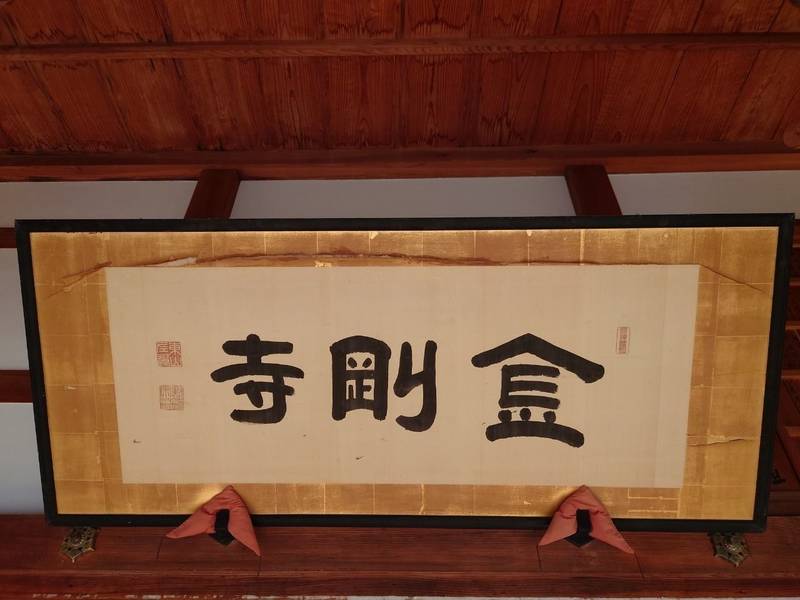 金剛寺